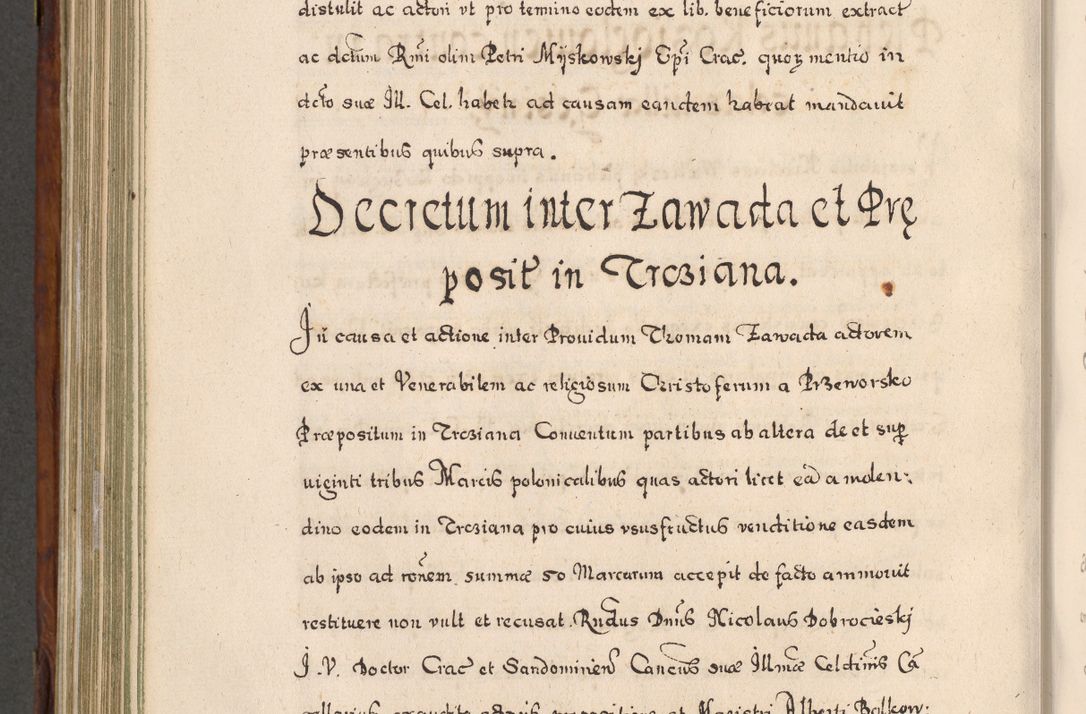 distulit ac actori vt pro termino eodem ex lib. beneficiorum extract
ac dctum Rmi olim Petri Myskowskj Epi Crac. quoꝝ mentio in
dcto suæ Ill. Cel. habetr ad causam eandem habeat mandauit
præsentibus quibus supra.
Decretum inter Zawada et Prę
posit in Trcziana.
In causa et actione inter Prouidum Thomam Zawada actorem
ex una et Venerabilem ac religiosum Christoferum a Przeworsko
Præpositum in Trcziana Conuentum partibus ab altera de et sup
uiginti tribus Marcis polonicalibus quas actori licet ea a molen:
dino eodem in Trcziana pro cuius vsusfructus venditione easdem
ab ipso ad ronem summæ 50 Marcarum accepit de facto ammouit
restituere non vult et recusat. Rndus Dnus Nicolaus Dobrocieskj
J.V. Doctor Crac et Sandomirien Cancus suæ Illmæ Celdinis Cā